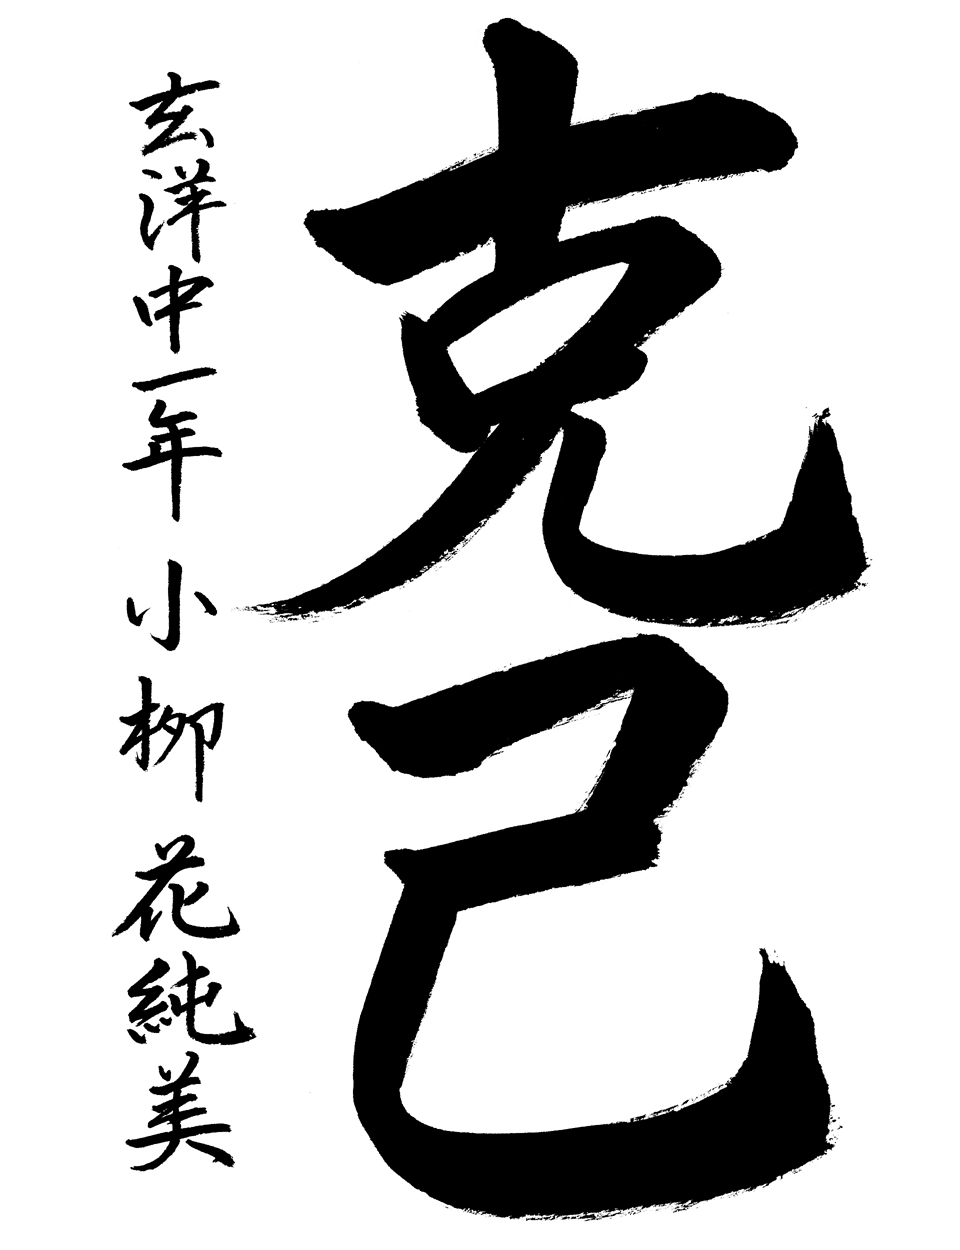 克己
玄洋中一年 小柳 花純美